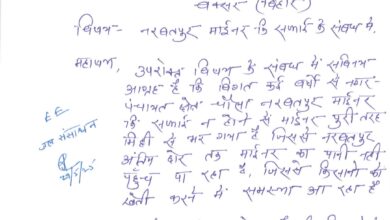 बक्सर (बिहार)
विषय:- नरबतपुर माईनर कि सफाई के संबंध में.
महाशय,
उपरोक्त विषय के संबंध में सविनय
आग्रह है कि विगत कई वर्षो से नगर-
पंचायत क्षेत्र चौसा नरबतपुर माईनर
कि सफाई न होने से माईनर पुरी तरह
मिट्टी से भर गया है, जिससे नरबतपुर
अंतिम छोर तक माईनर का पानी नही
पहुँच पा रहा है, जिससे किसानो को
खेती करने में समस्या आ रहा है
EE
जल संसाधन